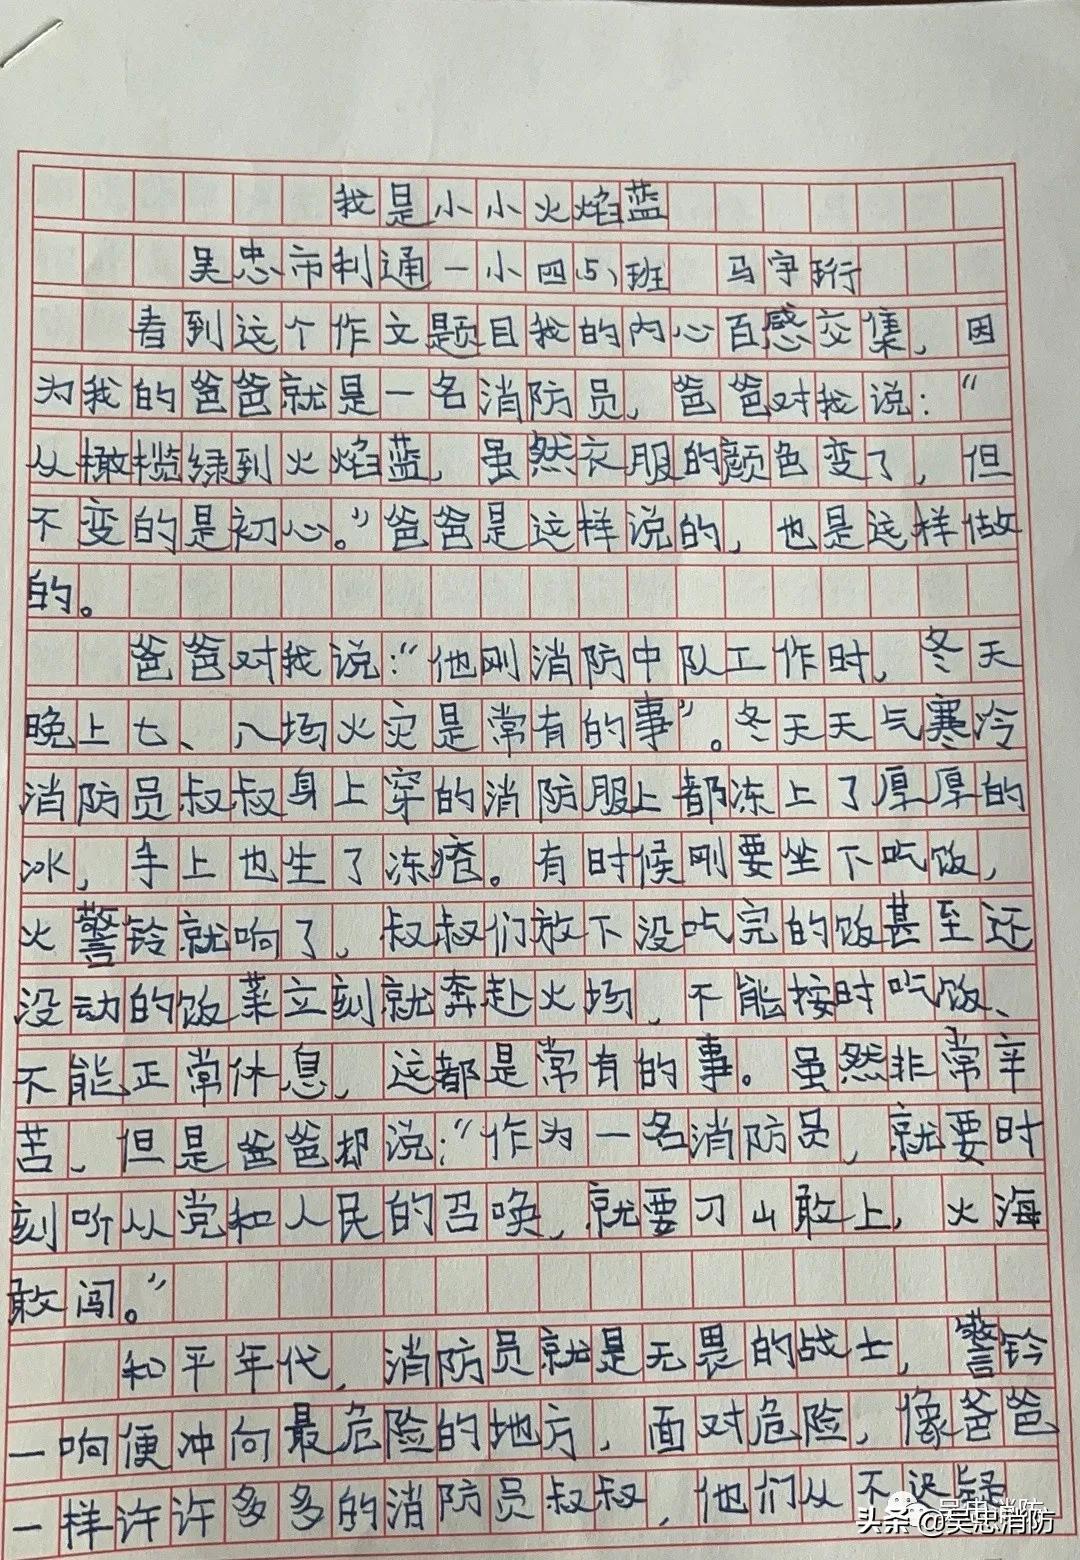 我是小小火焰蓝
吴忠市利通一小四(5)班 马宇珩
看到这个作文题目我的内心百感交集,因
为我的爸爸就是一名消防员,爸爸对我说:“
从橄榄绿到火焰蓝,虽然衣服的颜色变了,但
不变的是初心。”爸爸是这样说的,也是这样做
的。
爸爸对我说:“他刚消防中队工作时,冬天
晚上七、八场火灾是常有的事”。冬天天气寒冷
消防员叔叔身上穿的消防服上都冻上了厚厚的
冰,手上也生了冻疮。有时候刚要坐下吃饭,
火警铃就响了,叔叔们放下没吃完的饭甚至还
没动的饭菜立刻就奔赴火场,不能按时吃饭、
不能正常休息,这都是常有的事。虽然非常辛
苦,但是爸爸却说:“作为一名消防员,就要时
刻听从党和人民的召唤,就要刀山敢上,火海
敢闯。”
和平年代,消防员就是无畏的战士,警铃
一响便冲向最危险的地方,面对危险,像爸爸
一样许许多多的消防员叔叔,他们从不迟疑
吴忠消防
头条@吴忠消防